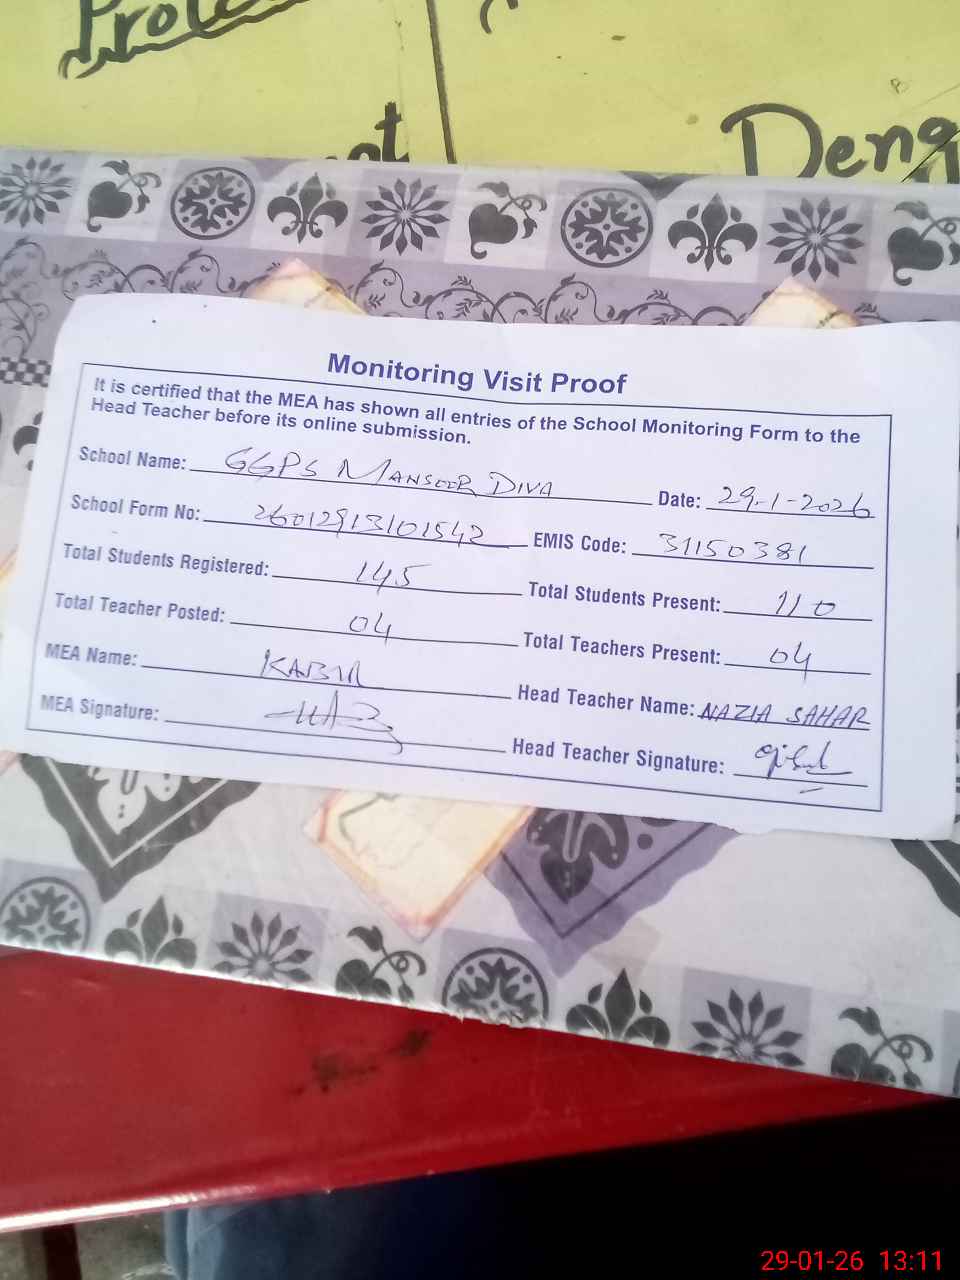 Deng
Monitoring Visit Proof
It is certified that the MEA has shown all entries of the School Monitoring Form to the
Head Teacher before its online submission.
School Name: GGPS MANSOOR DIVA Date: 29-1-2026
School Form No: 26012913101542 EMIS Code: 31150381
Total Students Registered: 145 Total Students Present: 110
Total Teacher Posted: 04 Total Teachers Present: 04
MEA Name: KABIR Head Teacher Name: NAZIA SAHAR
MEA Signature: Head Teacher Signature:
29-01-26 13:11